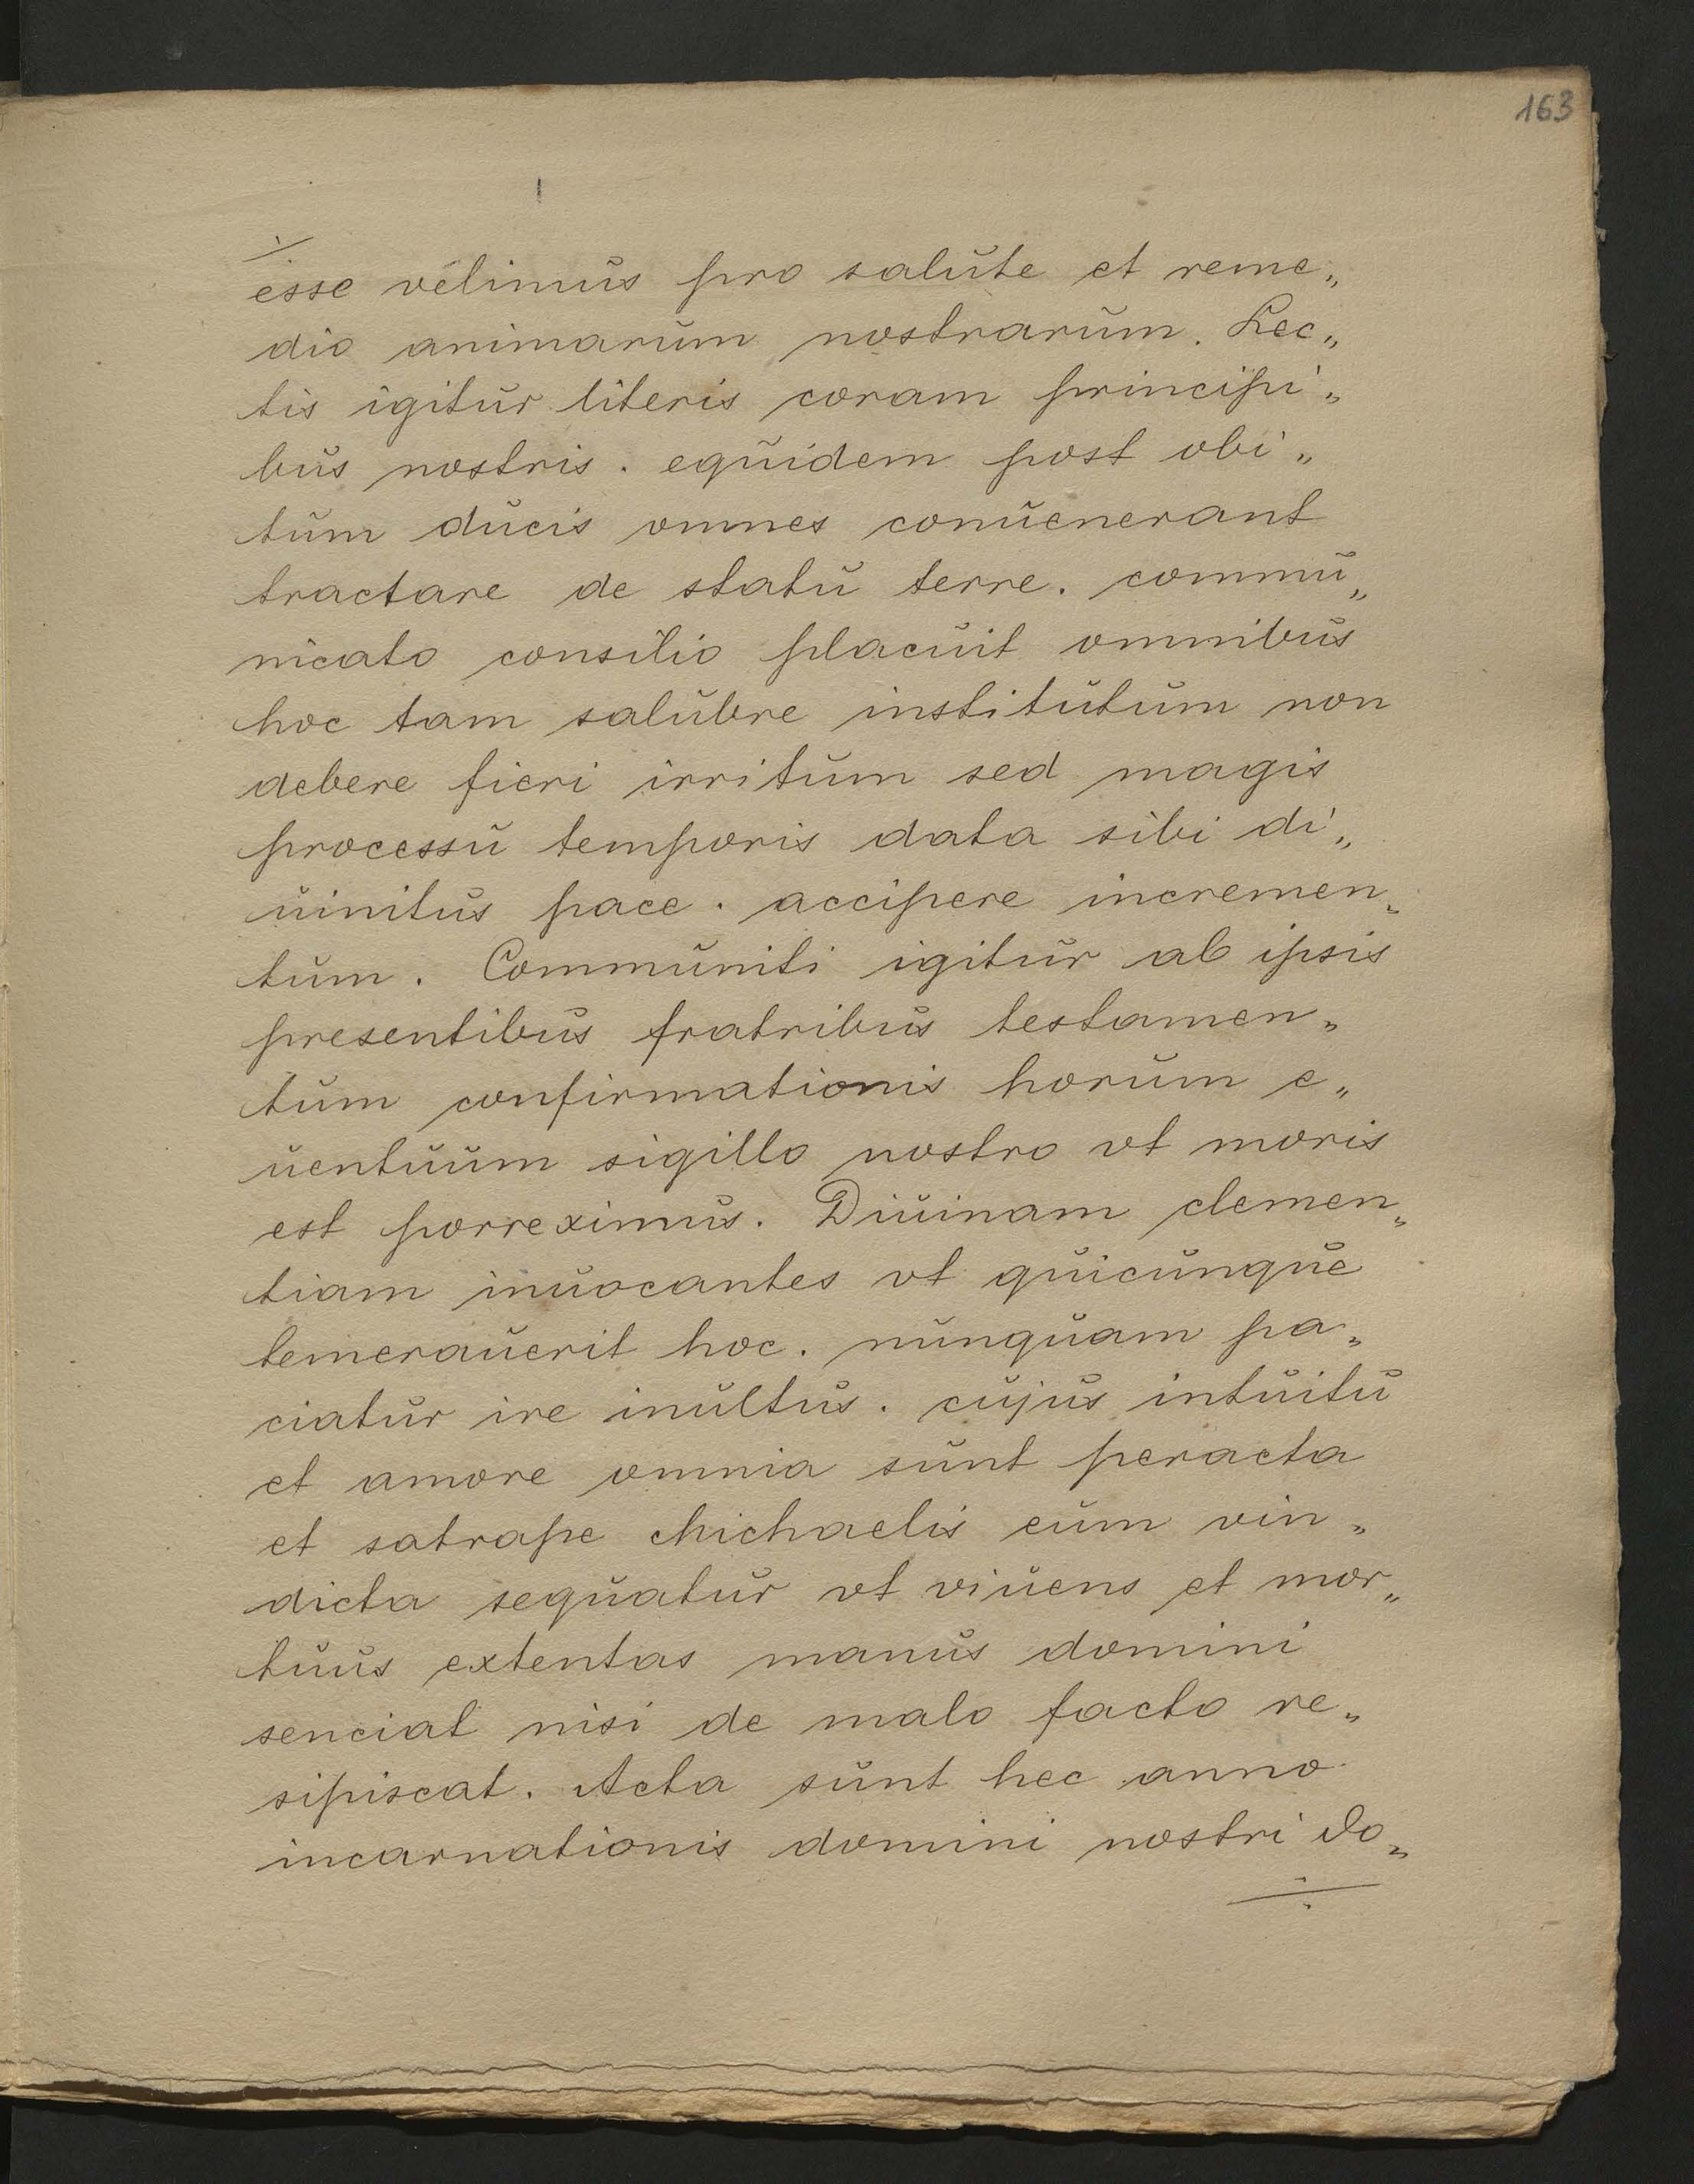 163
esse velimus pro salute et reme„
dio animarum nostrarum. Lec„
tis igitur literis coram principi„
bus nostris. equidem post obi„
tum ducis omnes conuenerant
tractare de statu terre. commu„
nicato consilio placuit omnibus
hoc tam salubre institutum non
debere fieri irritum sed magis
processu temporis data sibi di„
uinitus pace. accipere incremen„
tum. Communiti igitur ab ipsis
presentibus fratribus testamen„
tum confirmationis horum e„
uentuum sigillo nostro vt moris
est porreximus. Diuinam clemen„
tiam inuocantes vt quicunque
temerauerit hoc. nunquam pa„
ciatur ire inultus. cujus intuitu
et amore omnia sunt peracta
et satrape Michaelis eum vin„
dicta sequatur vt viuens et mor„
tuus extentas manus domini
senciat nisi de malo facto re„
sipiscat. Acta sunt hec anno
incarnationis domini nostri Do„